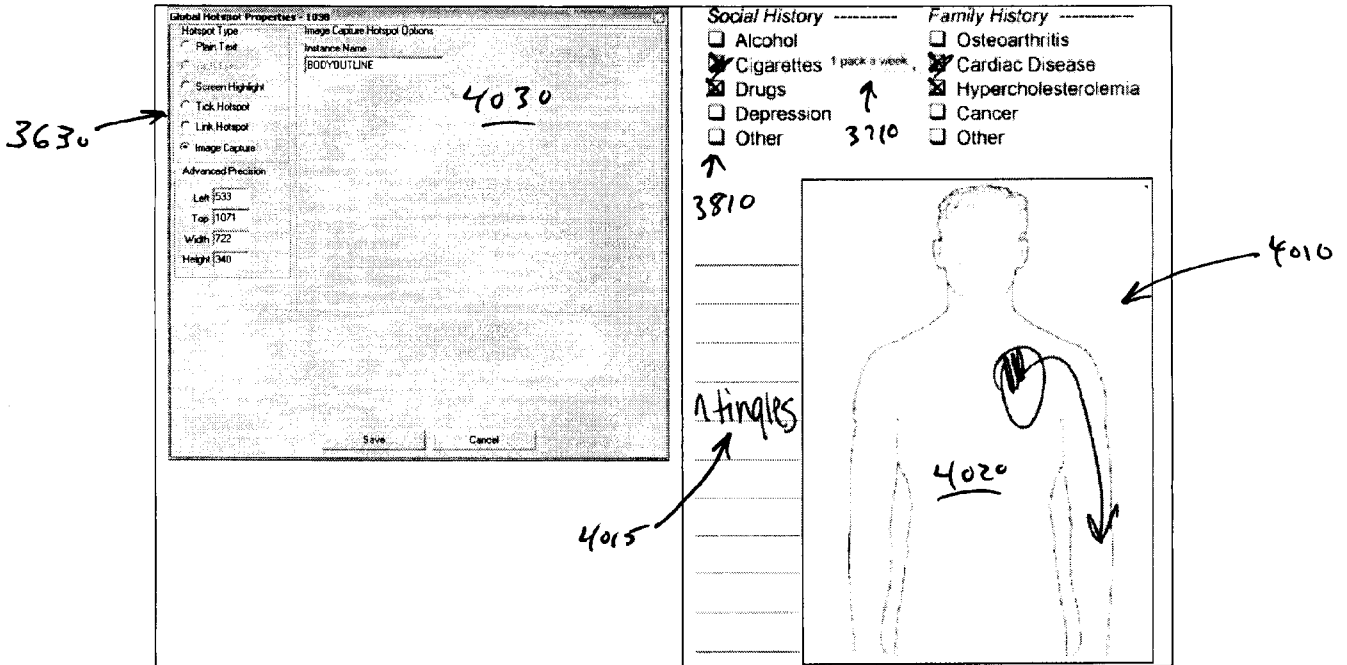 Global Hotspot Properties - 1038
Hotspot Type
Plain Text
Screen Highlight
Tick Hotspot
Link Hotspot
Image Capture
Advanced Precision
Left 533
Top 1071
Width 722
Height 340
Image Capture Hotspot Options
Instance Name
BODYOUTLINE
4030
Save Cancel
3630
Social History ----------
Alcohol
Cigarettes 1 pack a week
Drugs
Depression
Other
3710
3810
Family History ----------
Osteoarthritis
Cardiac Disease
Hypercholesterolemia
Cancer
Other
4010
tingles
4020
4015